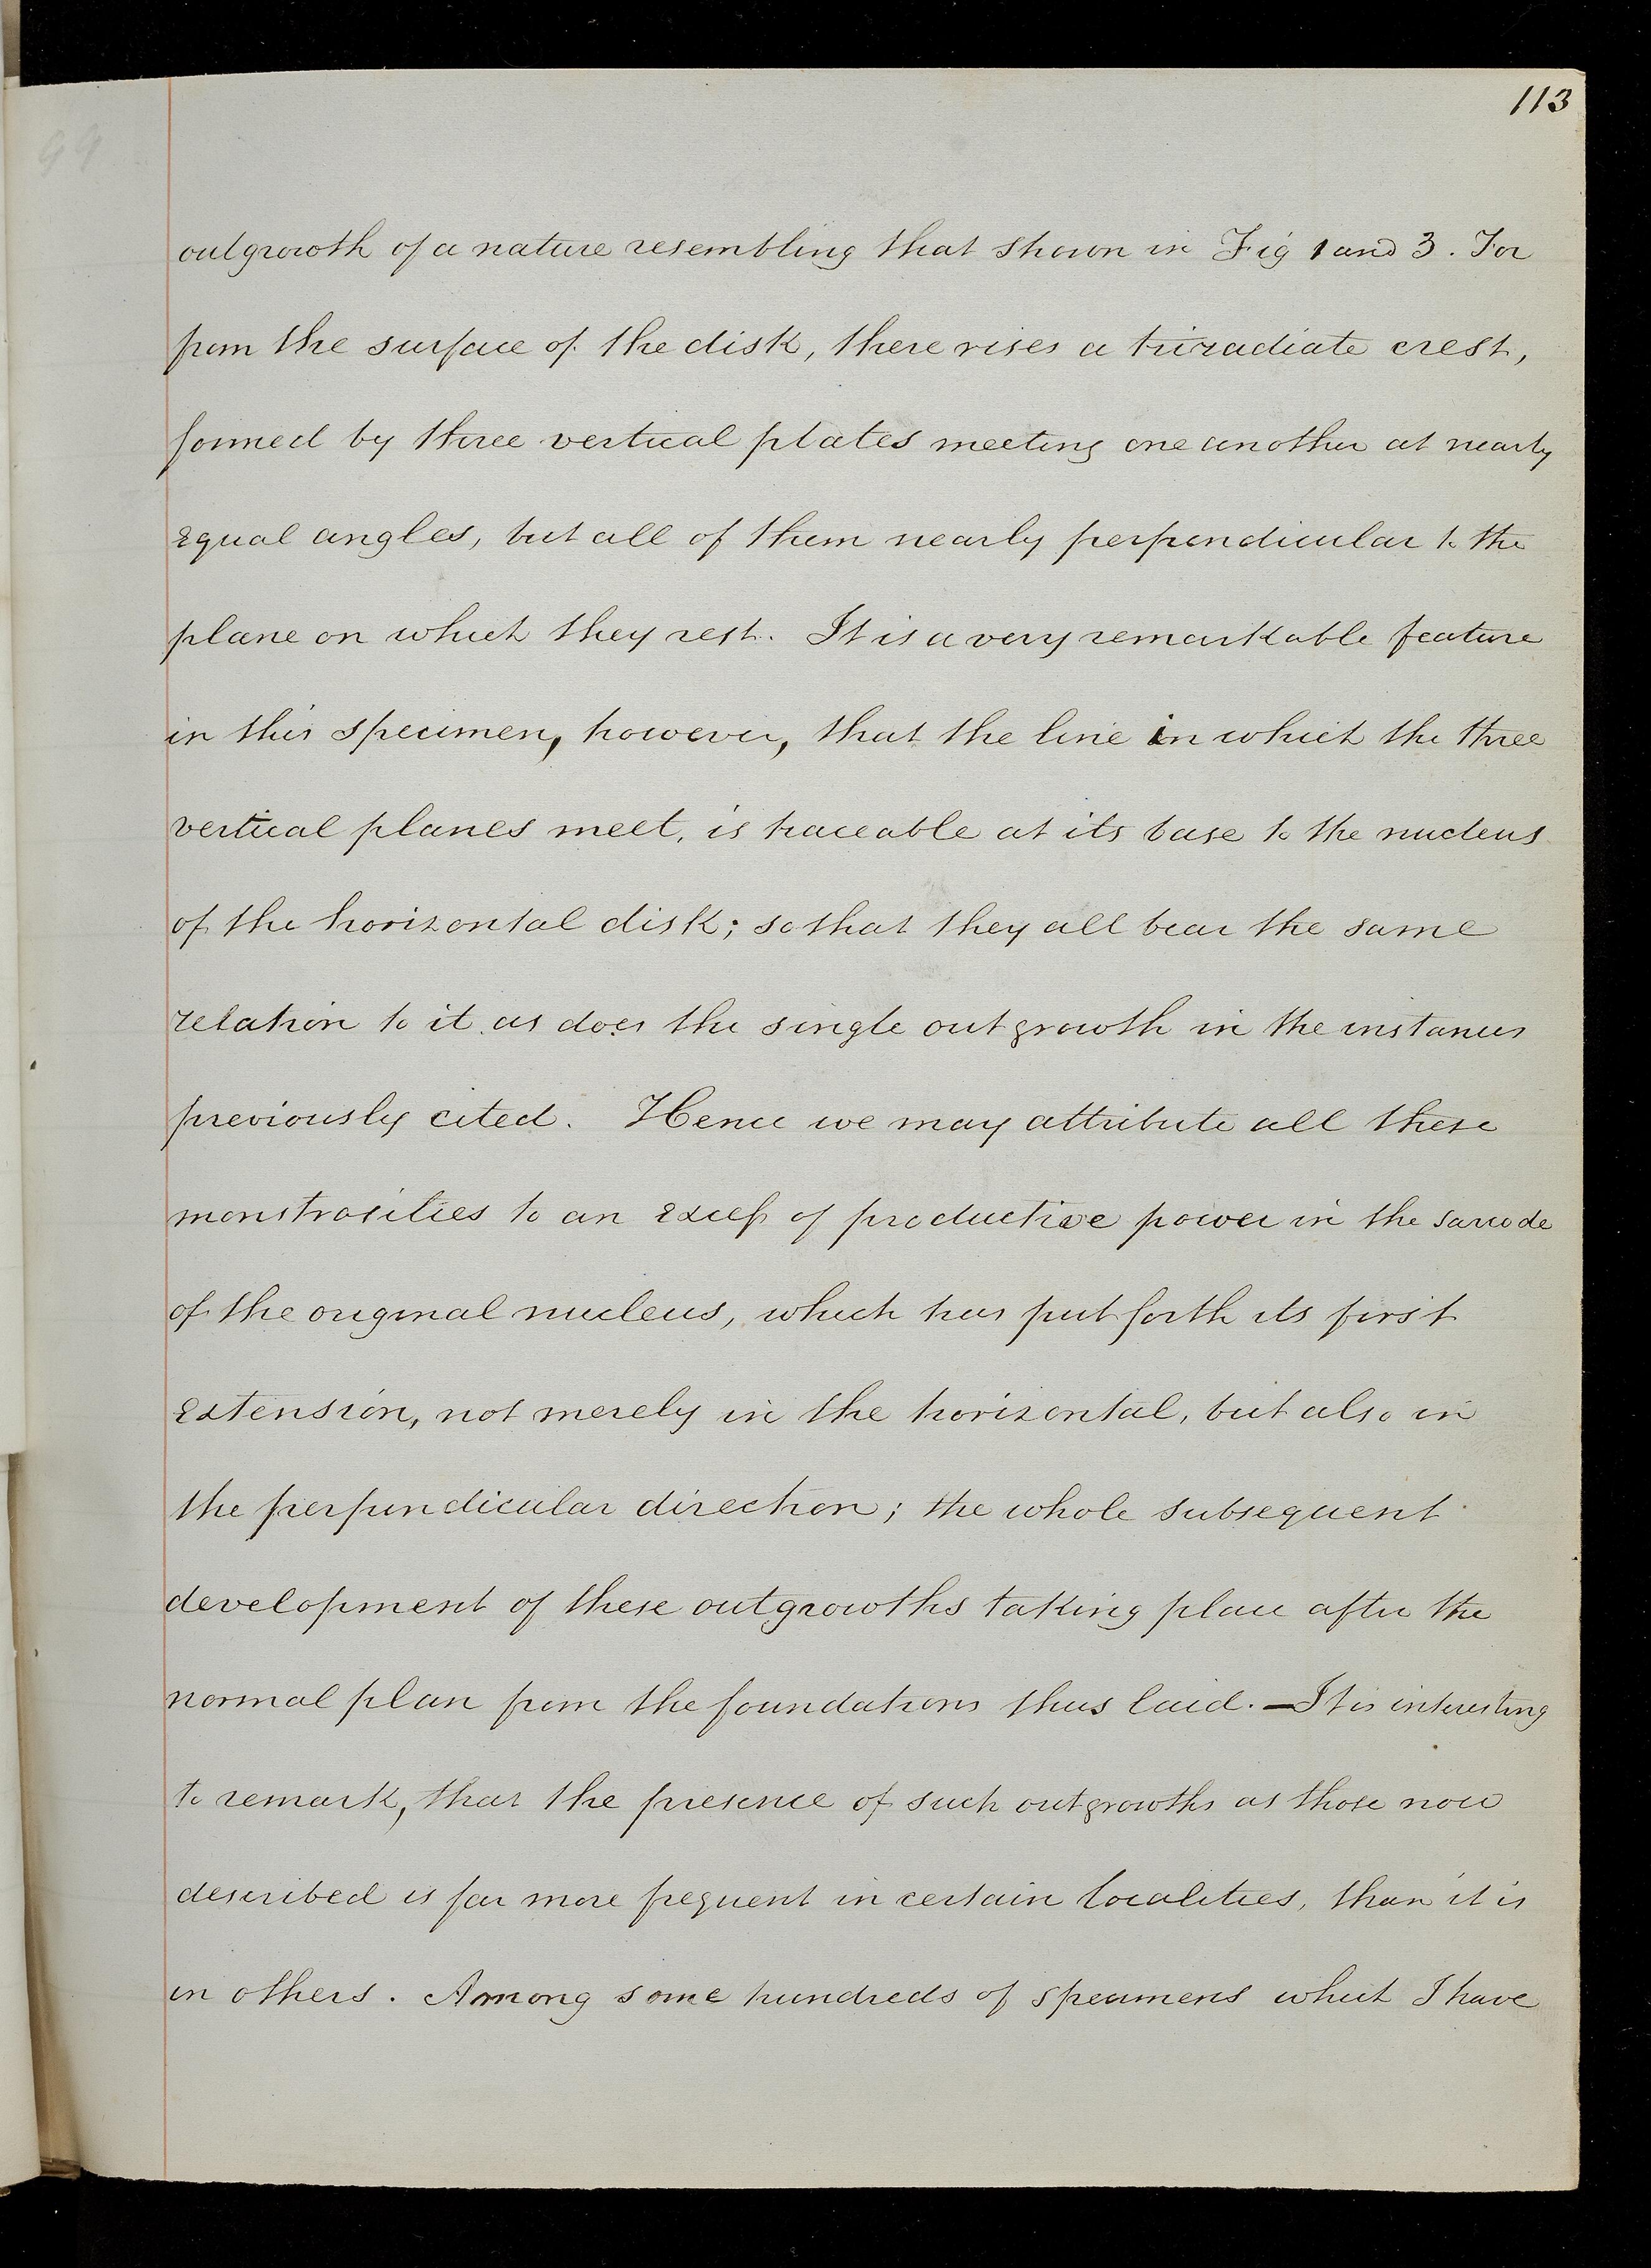 113
outgrowth of a nature resembling that shown in Fig 1 and 3. For
from the surface of the disk, there rises a triradiate crest,
formed by three vertical plates meeting one another at nearly
equal angles, but all of them nearly perpendicular to the
plane on which they rest. It is a very remarkable feature
in this specimen, however, that the line in which the three
vertical planes meet, is traceable at its base to the nucleus
of the horizontal disk; so that they all bear the same
relation to it as does the single outgrowth in the instances
previously cited. Hence we may attribute all these
monstrosities to an excess of productive power in the sarcode
of the original nucleus, which has put forth its first
extension, not merely in the horizontal, but also in
the perpendicular direction; the whole subsequent
development of these outgrowths taking place after the
normal plan from the foundations thus laid. — It is interesting
to remark, that the presence of such outgrowths as those now
described is far more frequent in certain localities, than it is
in others. Among some hundreds of specimens which I have